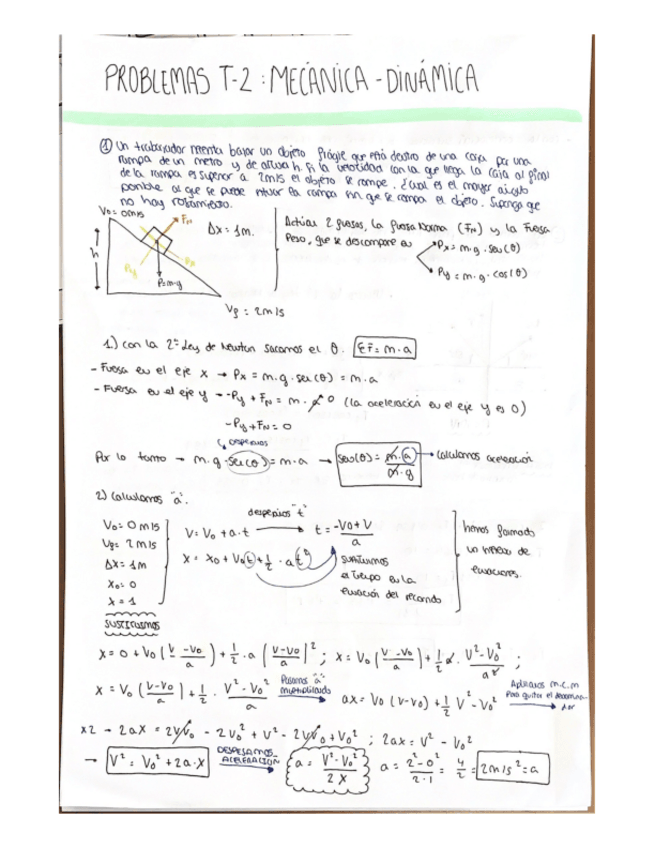 PROBLEMAS T-2 : MECÁNICA - DINÁMICA
① Un trabajador intenta bajar un objeto frágil que está dentro de una caja por una
rampa de un metro y de altura h. Si la velocidad con la que llega la caja al final
de la rampa es superior a 2m/s el objeto se rompe. ¿Cuál es el mayor ángulo
posible al que se puede situar la rampa sin que se rompa el objeto. Suponga que
no hay rozamiento.
V₀ = 0m/s
FN
Δx = 1m.
h
Py
Px
P=m·g
Vf = 2m/s
Actúan 2 fuerzas, la fuerza Normal (FN) y la fuerza
Peso, que se descompone en
Px = m·g·sen(θ)
Py = m·g·cos(θ)
1) con la 2ª Ley de Newton sacamos el θ. ΣF = m·a
- Fuerza en el eje x → Px = m·g·sen(θ) = m·a
- Fuerza en el eje y → -Py + FN = m·a 0 (la aceleración en el eje y es 0)
-Py + FN = 0
despejamos
Por lo tanto → m·g·sen(θ) = m·a → sen(θ) = m·a / m·g → calculamos aceleración
2) Calculamos "a".
V₀ = 0 m/s
Vf = 2 m/s
Δx = 1m
x₀ = 0
x = 1
SUSTITUIMOS
despejamos "t"
V = V₀ + a·t → t = -V₀+V / a
x = x₀ + V₀t + 1/2 · at²
sustituimos
el tiempo en la
ecuación del recorrido
hemos formado
un sistema de
ecuaciones.
x = 0 + V₀ (V-V₀ / a) + 1/2 · a (V-V₀ / a)² ; x = V₀ (V-V₀ / a) + 1/2 a · V²-V₀² / a² ;
x = V₀ (V-V₀ / a) + 1/2 · V²-V₀² / a Pasamos "a" multiplicando ax = V₀ (V-V₀) + 1/2 V²-V₀² Aplicamos m.c.m para quitar el denominador
x2 → 2ax = 2VV₀ - 2V₀² + V² - 2VV₀ + V₀² ; 2ax = V² - V₀²
→ V² = V₀² + 2a·x DESPEJAMOS ACELERACIÓN a = V²-V₀² / 2x a = 2²-0² / 2·1 = 4/2 = 2m/s² = a